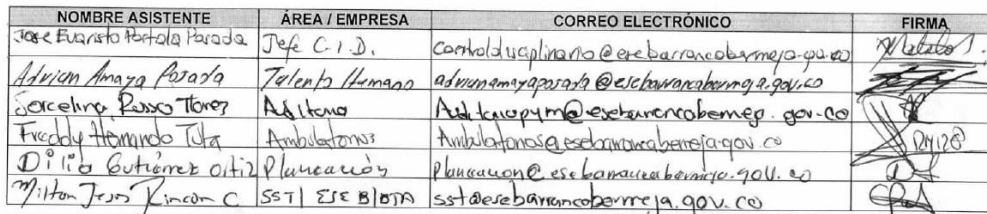 NOMBRE ASISTENTE ÁREA / EMPRESA CORREO ELECTRÓNICO FIRMA
Jose Evaristo Portala Parada Jefe C.I.D. controldisciplinario@esebarrancabermeja.gov.co
Adrian Amaya Posada Talento Humano adrianamayaposada@esebarrancabermeja.gov.co
Jorcelina Russo Torrez @esebarrancabermeja.gov.co
Freddy Hernando Tuta Ambulatorios Ambulatorios@esebarrancabermeja.gov.co
Dilia Gutiérrez Ortiz Planeación planeacion@esebarrancabermeja.gov.co
Milton Jesus Rincon C SST | ESE B/BJA sst@esebarrancabermeja.gov.co